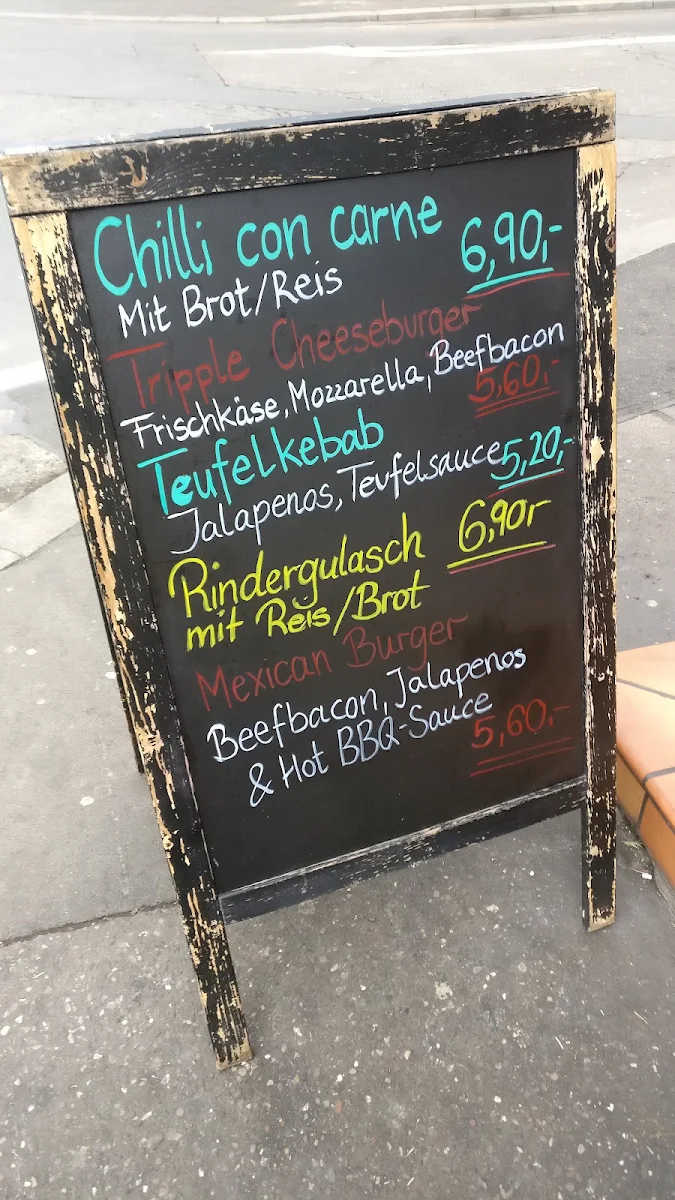 Chilli con carne 6,90,-
Mit Brot/Reis
Tripple Cheeseburger
Frischkäse, Mozzarella, Beefbacon
5,60,-
Teufelkebab
Jalapenos, Teufelsauce 5,20,-
Rindergulasch 6,90,-
mit Reis/Brot
Mexican Burger
Beefbacon, Jalapenos
& Hot BBQ-Sauce
5,60,-